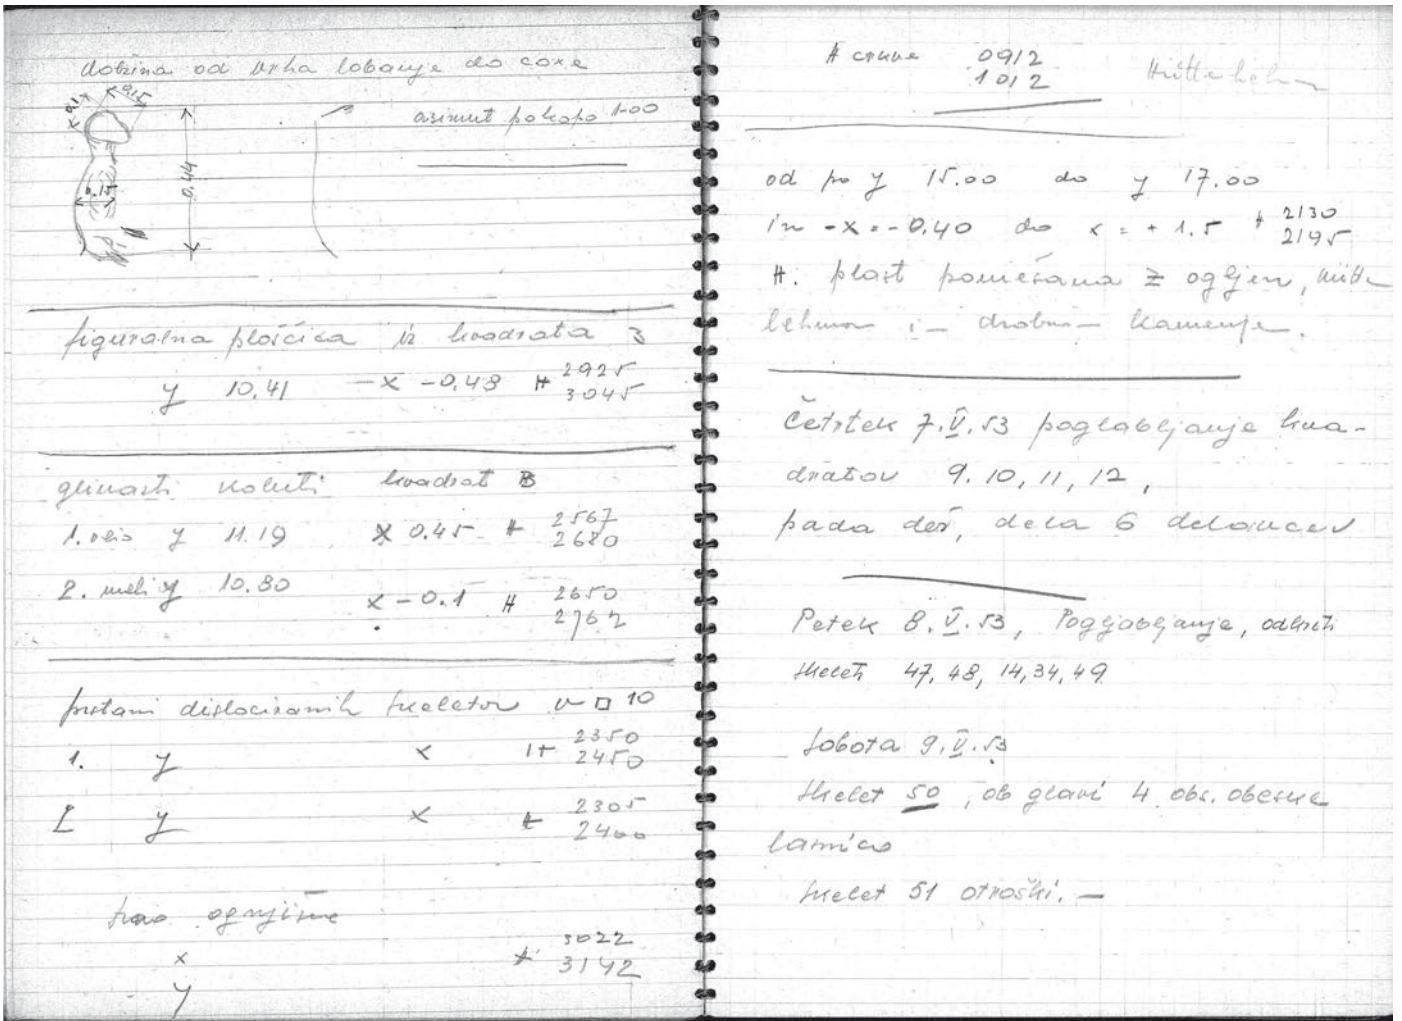 dolžina od vrha lobanje do coxe
0.1 0,15
azimut pokopa 1-00
0,44
0.15
figuralna ploščica iz kvadrata 3
y 10,41 -x -0,48 H 2925
3045
glinasti koluti kvadrat B
1. večji y 11.19 x 0.45 H 2567
2680
2. mali y 10.80 x -0.1 H 2650
2762
prstani dislociranih skeletov v □ 10
1. y x H 2350
2450
2 y x H 2305
2400
ognjišče
x H 3022
3142
y
H crkve 0912
1012
Hüttenlehm
od po y 15.00 do y 17.00
in -x = -0,40 do x = + 1.5 H 2130
2195
H. plast pomešana z ogljem, hütten
lehmom in drobnim kamenjem.
Četrtek 7.V.53 poglabljanje kva-
dratov 9. 10, 11, 12,
pada dež, dela 6 delavcev
Petek 8.V.53, Poglabljanje, odkriti
skeleti 47, 48, 14, 34, 49
Sobota 9.V.53
Skelet 50, ob glavi 4 obs. obeske
Skelet 51 otroški. —